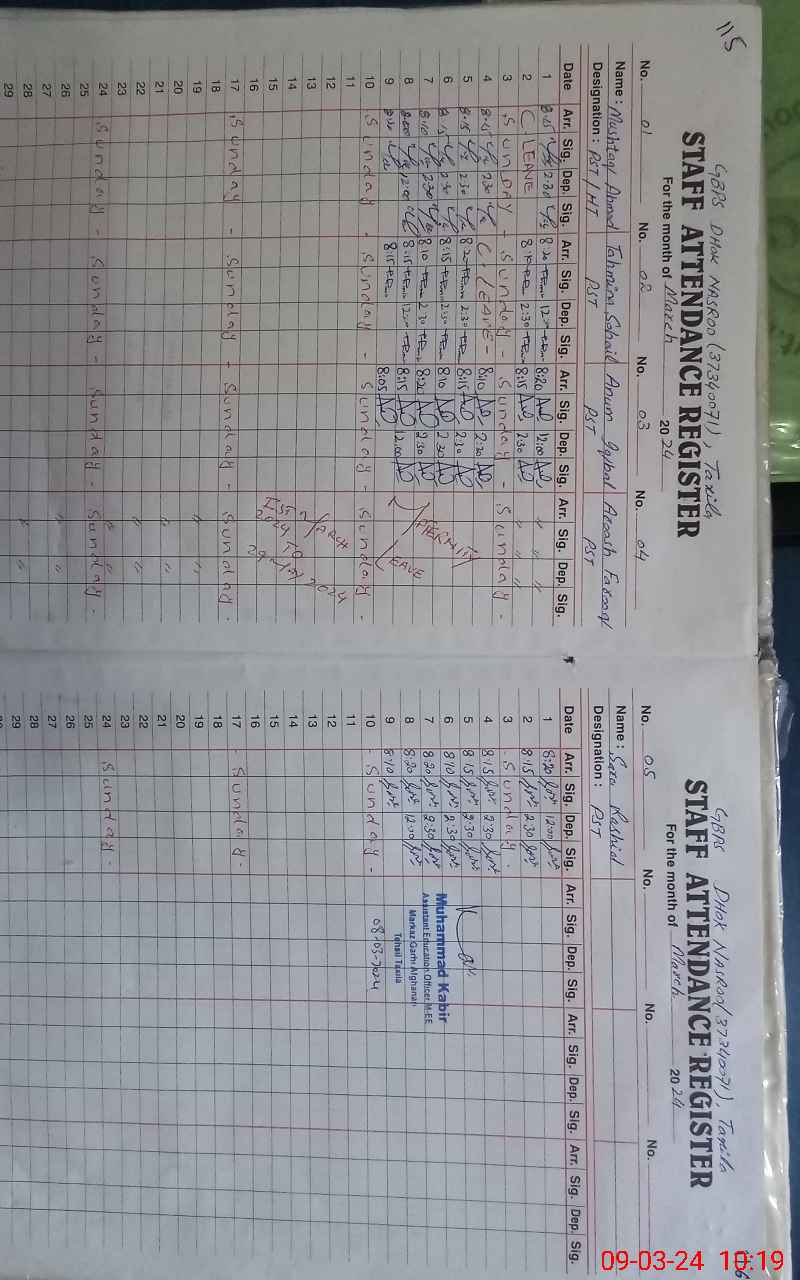 115
GBPS DHOK NASROO (37340071), Taxila
STAFF ATTENDANCE REGISTER
For the month of March 2024
No. 01 No. 02 No. 03 No. 04
Name : Mushtaq Ahmad Tahmina Sohail Anum Iqbal Aroosh Farooq
Designation : PST/HT PST PST PST
Date Arr. Sig. Dep. Sig. Arr. Sig. Dep. Sig. Arr. Sig. Dep. Sig. Arr. Sig. Dep. Sig.
1 8:15 12:30 8:20 8:20 12:00 " "
2 C LEAVE 8:15 2:30 8:15 2:30 " "
3 SUNDAY - Sunday - Sunday - Sunday -
4 8:15 2:30 C. LEAVE - 8:10 2:30
5 8:15 2:30 8:20 2:30 8:15 2:30
6 8:15 2:30 8:15 2:30 8:10 2:30
7 8:10 2:30 8:10 2:30 8:20 2:30
8 8:00 8:15 12:00 8:15 12:00
9 8:15 8:05
10 Sunday - Sunday - Sunday - Sunday -
11
12
13
14
15
16
17 Sunday - Sunday - Sunday - Sunday -
18
19 " "
20
21 " "
22 " "
23
24 Sunday - Sunday - Sunday - Sunday -
25
26 " "
27
28 " "
29
LEAVE
MARCH
2024 TO
2024
GBPS DHOK NASROO (37340071), Taxila
STAFF ATTENDANCE REGISTER
For the month of March 2024
No. 05 No. No. No.
Name : Sara Rashid
Designation : PST
Date Arr. Sig. Dep. Sig. Arr. Sig. Dep. Sig. Arr. Sig. Dep. Sig. Arr. Sig. Dep. Sig.
1 8:20 12:00
2 8:15 2:30
3 - Sunday -
4 8:15 2:30
5 8:15 2:30
6 8:10 2:30
7 8:20 2:30
8 8:20 12:00
9 8:10
10 - Sunday -
11
12
13
14
15
16
17 - Sunday -
18
19
20
21
22
23
24 Sunday -
25
26
27
28
29
Muhammad Kabir
Assistant Education Officer M-EE
Markaz Garhi Afghanan
Tehsil Taxila
08-03-2024
09-03-24 10:19